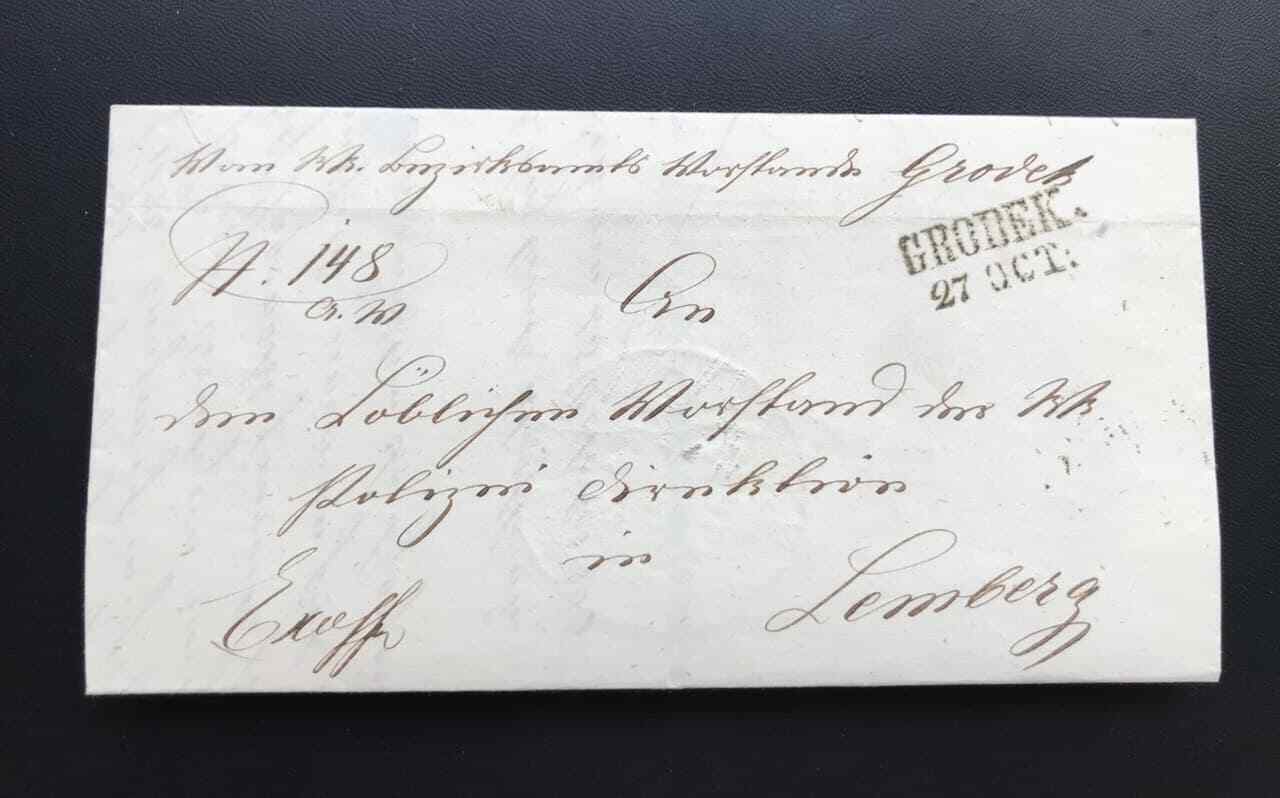 Vom kk. Bezirksamts Vorstande Grodek
GRODEK.
27 OCT:
N. 148
a. W
An
den Löblichen Vorstand der kk.
Polizei Direktion
in
Lemberg
Exoffo